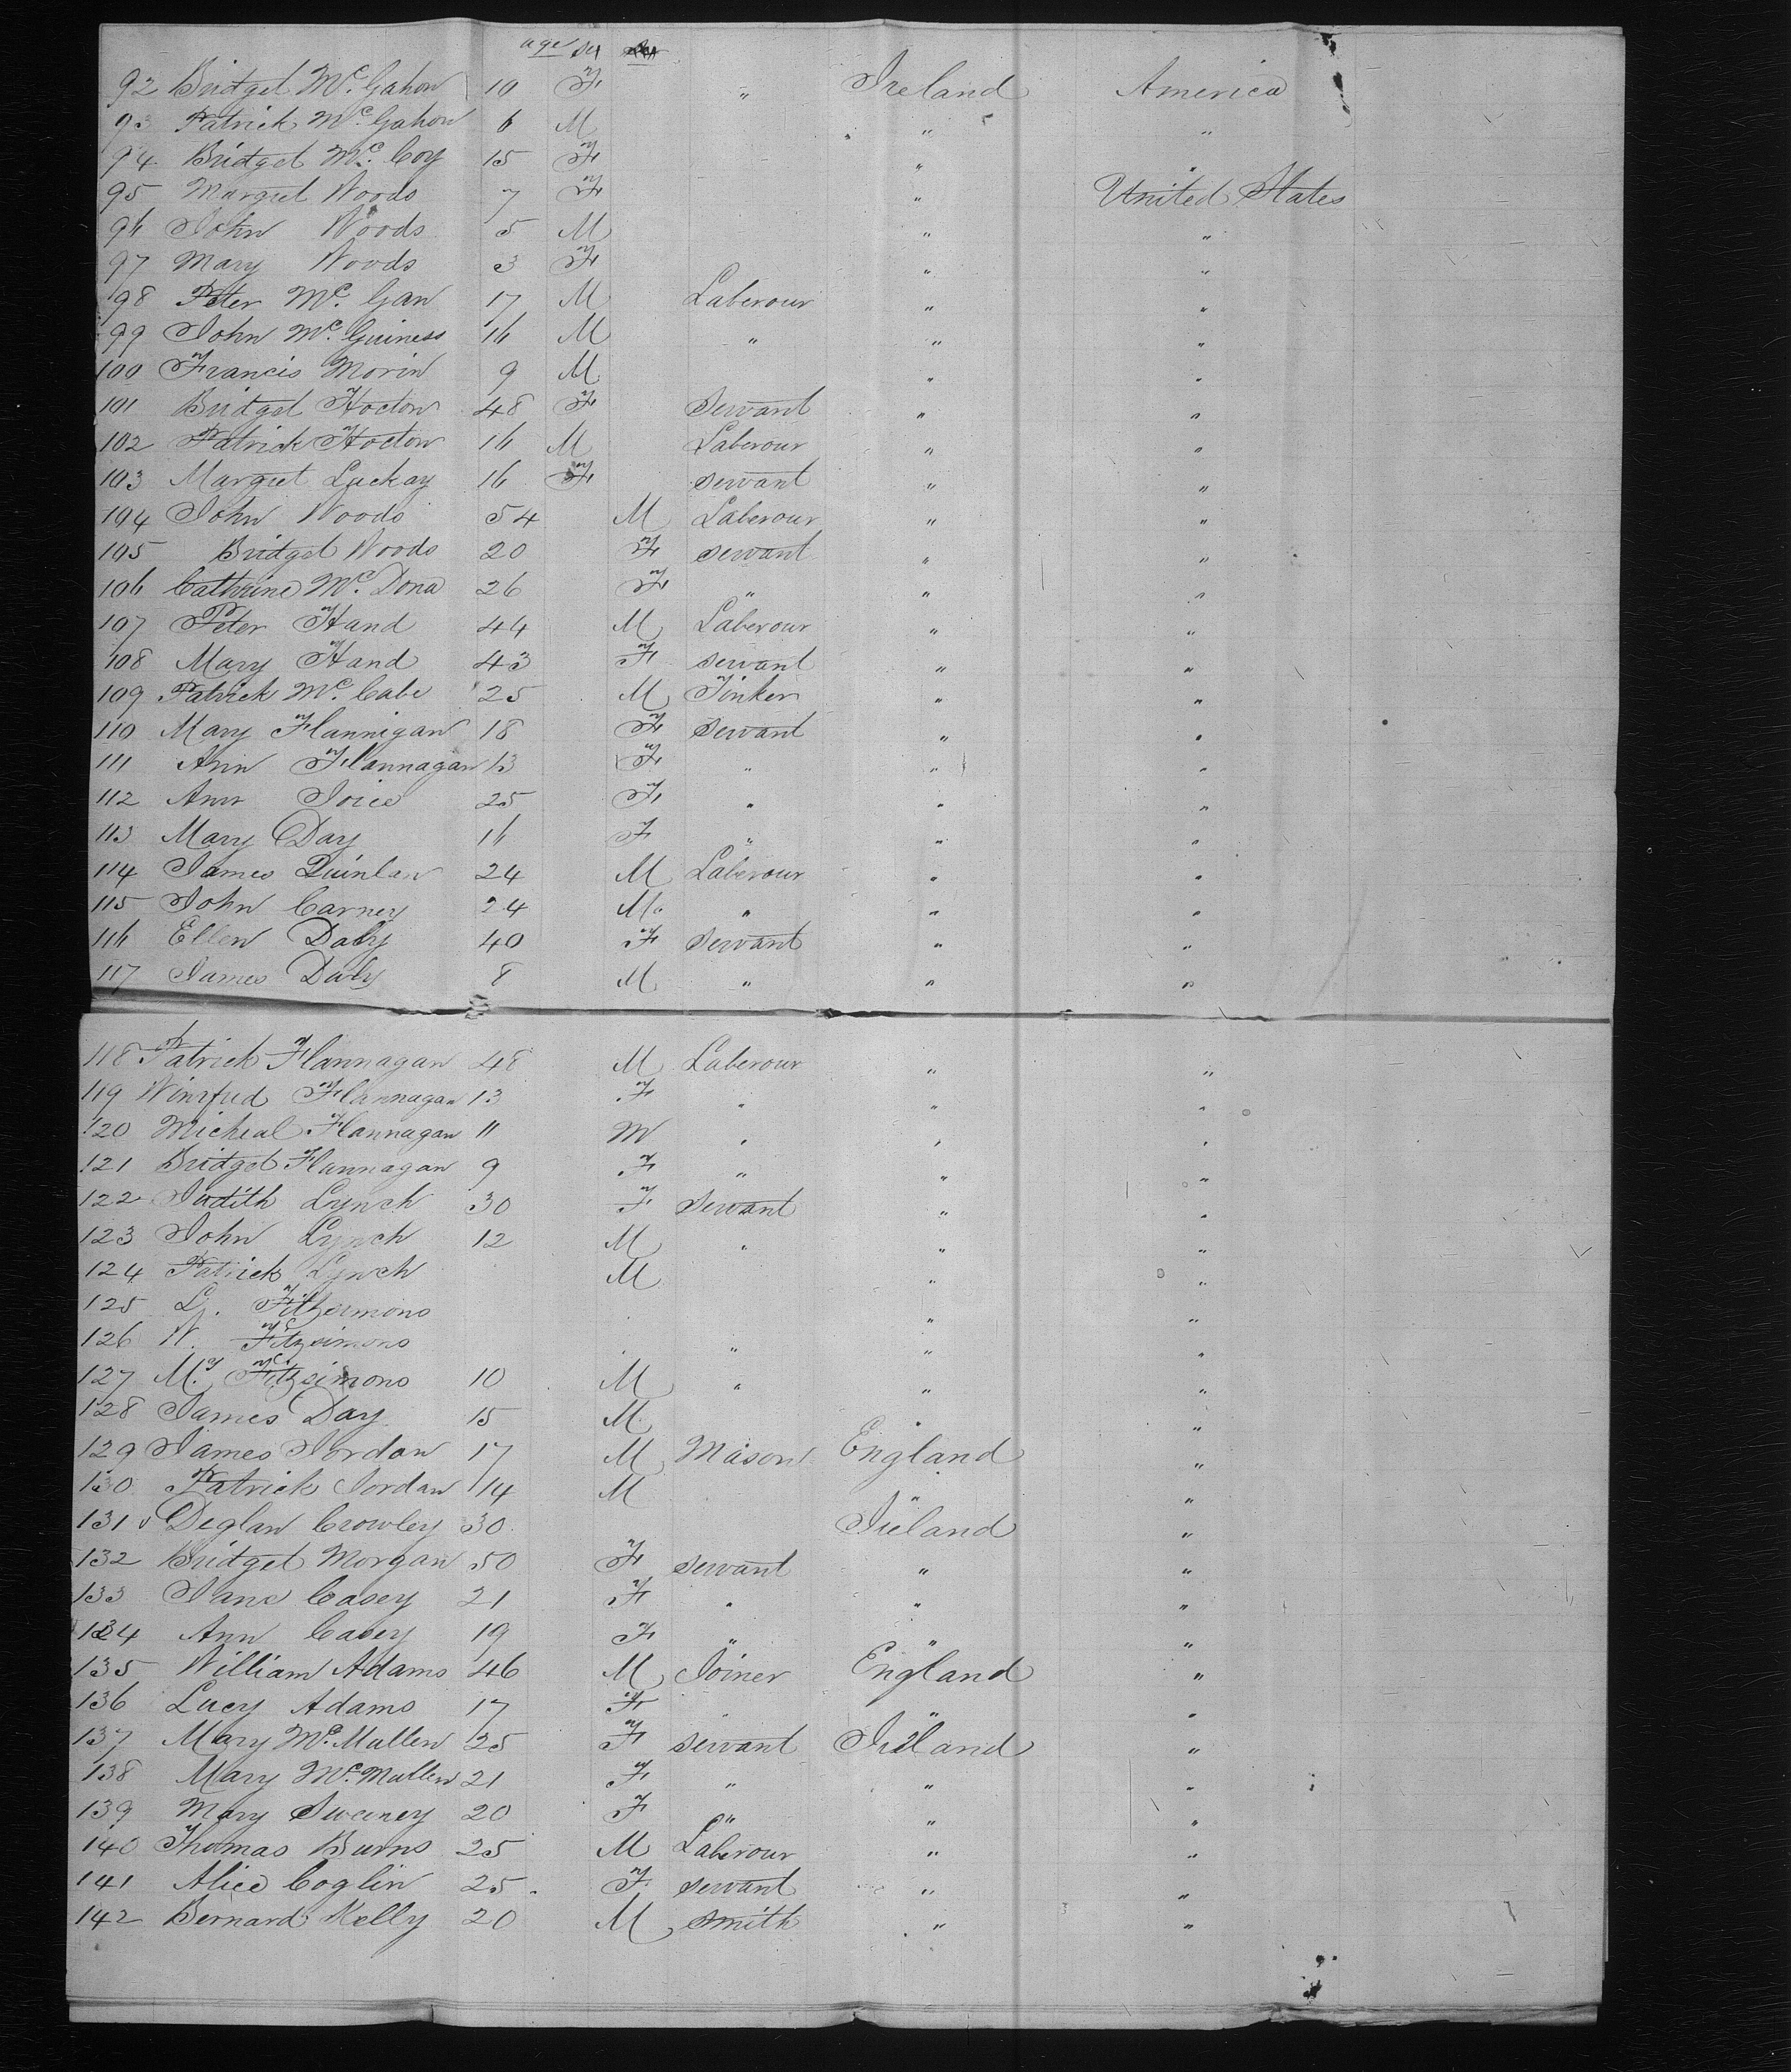 age sex
92 Bridget Mc. Gahon 10 F " Ireland America
93 Patrick Mc. Gahon 6 M " "
94 Bridget Mc. Coy 15 F " "
95 Margret Woods 7 F " United States
96 John Woods 5 M " "
97 Mary Woods 3 F " "
98 Peter Mc. Gan 17 M Laberour " "
99 John Mc. Guiness 16 M " " "
100 Francis Morin 9 M " "
101 Bridget Hocton 48 F Servant " "
102 Patrick Hocton 16 M Laberour " "
103 Margret Luckay 16 F servant " "
104 John Woods 54 M Laberour " "
105 Bridget Woods 20 F servant " "
106 Cathrine Mc. Dona 26 F " " "
107 Peter Hand 44 M Laberour " "
108 Mary Hand 43 F servant " "
109 Patrick Mc. Cabe 25 M Tinker " "
110 Mary Flannigan 18 F servant " "
111 Ann Flannagan 13 F " " "
112 Ann Joice 25 F " " "
113 Mary Day 16 F " " "
114 James Quinlan 24 M Laberour " "
115 John Carney 24 M " " "
116 Ellen Daly 40 F servant " "
117 James Daly 8 M " " "
118 Patrick Flannagan 48 M Laberour " "
119 Winifred Flannagan 13 F " " "
120 Micheal Flannagan 11 M " " "
121 Bridget Flannagan 9 F " " "
122 Judith Lynch 30 F servant " "
123 John Lynch 12 M " " "
124 Patrick Lynch M " "
125 L. Fitzsimons " "
126 W. Fitzsimons " " "
127 My. Fitzsimons 10 M " " "
128 James Day 15 M " "
129 James Jordan 17 M Mason England "
130 Patrick Jordan 14 M " "
131 Deglan Crowley 30 Ireland "
132 Bridget Morgan 50 F servant " "
133 Jane Casey 21 F " " "
134 Ann Casey 19 F " " "
135 William Adams 46 M Joiner England "
136 Lucy Adams 17 F " "
137 Mary Mc. Mullen 35 F servant Ireland "
138 Mary Mc. Mullen 21 F " " "
139 Mary Sweeney 20 F " " "
140 Thomas Burns 25 M Laberour " "
141 Alice Coglin 25 F servant " "
142 Bernard Kelly 20 M smith " "